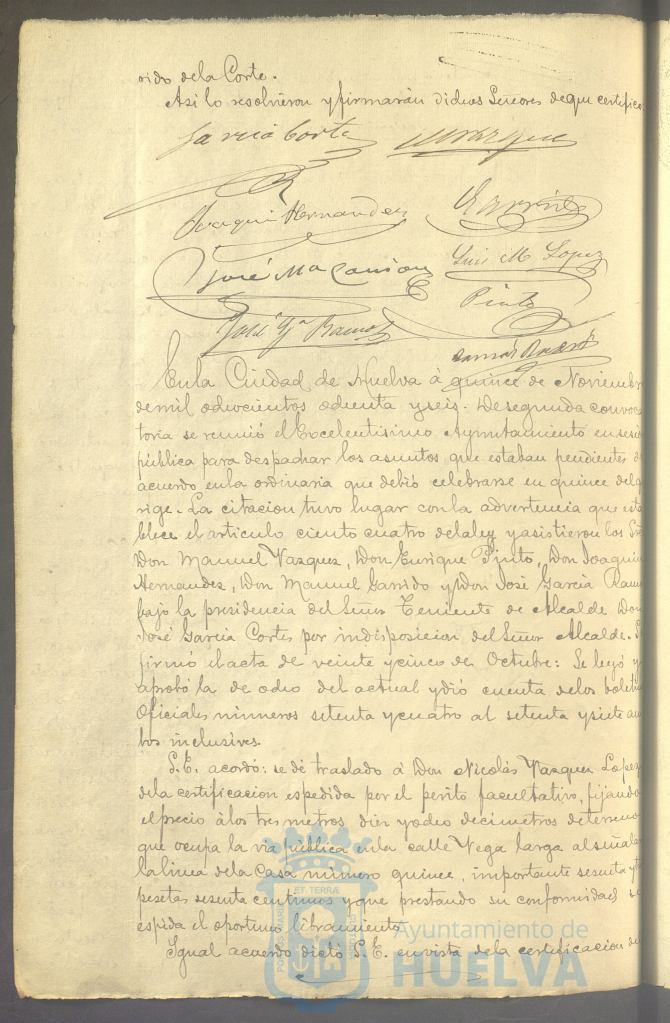 rido dela Corte.
Asi lo resolvieron y firmarán dichos Señores de que certifico
Garcia Cortes Vazquez
Joaquin Hernandez Garrido
José Mª Luis M. Lopez
Pinto
José Gª Ramos
En la Ciudad de Huelva á quince de Noviembre
de mil ochocientos ochenta y seis. De segunda convoca
toria se reunió el Excelentisimo Ayuntamiento en sesi
pública para despachar los asuntos que estaban pendientes d
acuerdo en la ordinaria que debió celebrarse en quince del q
rige. La citacion tuvo lugar con la advertencia que esta
blece el articulo ciento cuatro dela ley y asistieron los Sre
Don Manuel Vazquez, Don Enrique Pinto, Don Joaquin
Hernandez, Don Manuel Garrido y Don José Garcia Ram
bajo la presidencia del Señor Teniente de Alcalde Don
José Garcia Cortes por indisposicion del Señor Alcalde. S
firmó el acta de veinte y cinco de Octubre: Se leyó y
aprobó la de ocho del actual y dió cuenta delos boleti
Oficiales números setenta y cuatro al setenta y siete am
bos inclusives.
S.E. acordó: se dé traslado á Don Nicolás Vazquez Lopez
dela certificacion espedida por el perito facultativo, fijando
el precio á los tres metros diez y ocho decimetros de terreno
que ocupa la via pública en la calle Vega larga al señala
la linea dela Casa número quince, importante sesenta y t
pesetas sesenta centimos y que prestando su conformidad se
espida el oportuno libramiento.
Igual acuerdo dictó S.E. en vista de la certificacion de
Ayuntamiento de
HUELVA